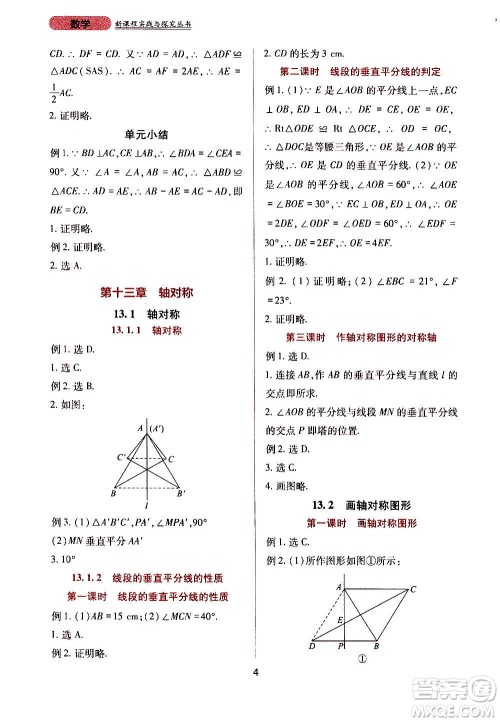 数学 新课程实践与探究丛书
CD. ∴ AF = AD. ∴ △ADF ≌
△ADC (SAS). ∴ AF = AC. ∴ AE =
1/2 AC.
2. 证明略.
单元小结
例 1. ∵ BD⊥AC, ∴ ∠AEC =
90°. ∴ △ABD ≌
△ACE. ∴ BD = CE. ∴ BE = CD, 即
BE = CD.
例 2. 证明略.
2. 选 A.
第十三章 轴对称
13.1 轴对称
13.1.1 轴对称
例 1. 选 D.
1. 选 A.
2. 如图:
A (A′)
C′ C
B B′
l
例 3. (1) △A′B′C′, ∠MPA′, PA′.
(2) MN 垂直平分 AA′.
3. 10°
13.1.2 线段的垂直平分线的性质
第一课时 线段的垂直平分线的性质
例 1. (1) AB = 15 cm; (2) ∠MCN = 40°.
1. 选 A.
例 2. 证明略.
2. CD 的长为 3 cm.
第二课时 线段的垂直平分线的判定
例 1. (1) ∵ E 是∠AOB 的平分线上一点, EC
⊥ OB, ED⊥OA, ∴ EC = DE. ∵ OE = OE,
∴ Rt△ODE ≌ Rt△OCE. ∴ OD =
OC. ∴ △DOC是等腰三角形. ∵ OE 是∠AOB 的平
分线, ∴ OE 是 CD 的垂直平分线. (2) ∵ OE
是∠AOB 的平分线, ∠AOB = 60°, ∴ ∠AOE =
∠BOE = 30°. ∵ EC⊥OB, ED⊥OA, ∴ OE =
2DE, ∠OED = 60°. ∴ ∠EDF =
30°. ∴ DE = 2EF. ∴ OE = 4EF.
1. 证明略.
例 2. (1) 证明略. (2) ∠EBC = 21°, ∠F =
∠C = 23°.
2. 证明略.
第三课时 作轴对称图形的对称轴
例 1. 选 D.
1. 连接 AB, 作 AB 的垂直平分线与直线 l 的
交点即所求.
2. ∠AOB 的平分线与线段 MN 的垂直平分线
的交点 P 即塔的位置.
3. 选 C.
4. 画图略.
13.2 画轴对称图形
第一课时 画轴对称图形
例 1. 选 C.
例 2. (1) 所作图形如图①所示:
A C
E
D P B
①
4